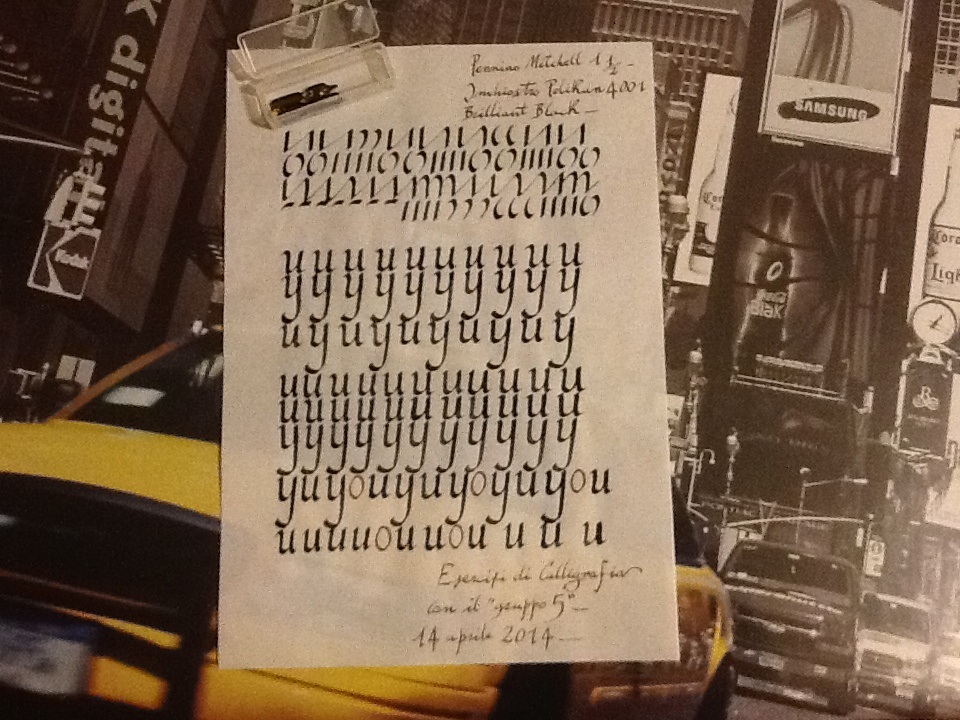 Pennino Mitchell 1 1/2
Inchiostro Pelikan 4001
Brilliant Black
u u u u u u u u u u
y y y y y y y y y y
u y u y u y u y u y
u u u u u u u u u u u
u u u u u u u u u u u
y y y y y y y y y y y
y u y o u y u y o y u y o u
u u u u o u u o u u u u
Esercizi di Calligrafia
con il "gruppo 5"
14 aprile 2014
k digital
Kodak
SAMSUNG
Corona
Light
Blak